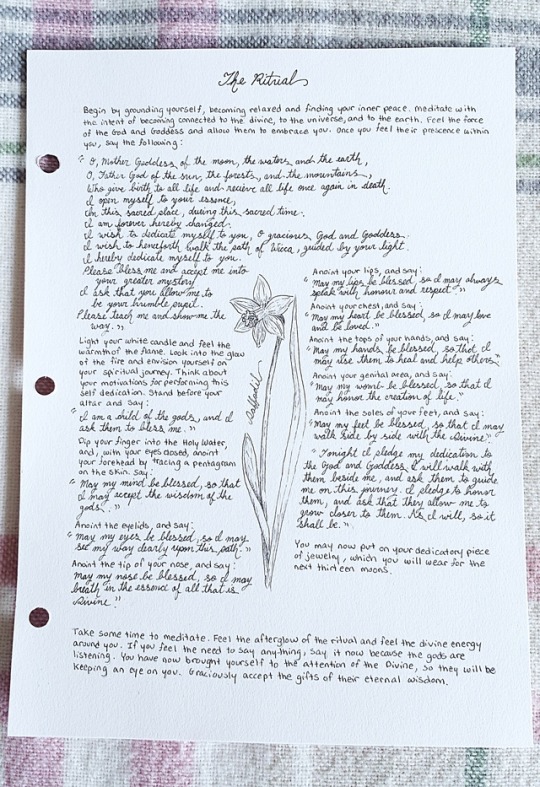 The Ritual
Begin by grounding yourself, becoming relaxed and finding your inner peace. Meditate with
the intent of becoming connected to the divine, to the universe, and to the earth. Feel the force
of the God and Goddess and allow them to embrace you. Once you feel their prescence within
you, say the following:
"O, Mother Goddess of the moon, the waters and the earth,
O, Father God of the sun, the forests, and the mountains,
Who give birth to all life and recieve all life once again in death.
I open myself to your essence,
In this sacred place, during this sacred time.
I am forever hereby changed.
I wish to dedicate myself to you, O gracious, God and Goddess.
I wish to henceforth walk the path of Wicca, guided by your light.
I hereby dedicate myself to you.
Please bless me and accept me into
your greater mystery
I ask that you allow me to
be your humble pupil.
Please teach me and show me the
way."
Light your white candle and feel the
warmth of the flame. Look into the glow
of the fire and envision yourself on
your spiritual journey. Think about
your motivations for performing this
self dedication. Stand before your
altar and say:
"I am a child of the gods, and I
ask them to bless me."
Dip your finger into the Holy Water,
and, with your eyes closed, anoint
your forehead by tracing a pentagram
on the skin. Say:
"May my mind be blessed, so that
I may accept the wisdom of the
gods."
Anoint the eyelids, and say:
"May my eyes be blessed, so I may
see my way clearly upon this path."
Anoint the tip of your nose, and say:
"May my nose be blessed, so I may
breath in the essence of all that is
Divine."
Daffodil
Anoint your lips, and say:
"May my lips be blessed, so I may always
speak with honour and respect."
Anoint your chest, and say:
"May my heart be blessed, so I may love
and be loved."
Anoint the tops of your hands, and say:
"May my hands be blessed, so that I
may use them to heal and help others."
Anoint your genital area, and say:
"May my womb be blessed, so that I
may honor the creation of life."
Anoint the soles of your feet, and say:
"May my feet be blessed, so that I may
walk side by side with the Divine."
"Tonight I pledge my dedication to
the God and Goddess. I will walk with
them beside me, and ask them to guide
me on this journey. I pledge to honor
them, and ask that they allow me to
grow closer to them. As I will, so it
shall be."
You may now put on your dedicatory piece
of jewelry, which you will wear for the
next thirteen moons.
Take some time to meditate. Feel the afterglow of the ritual and feel the divine energy
around you. If you feel the need to say anything, say it now because the gods are
listening. You have now brought yourself to the attention of the Divine, so they will be
keeping an eye on you. Graciously accept the gifts of their eternal wisdom.